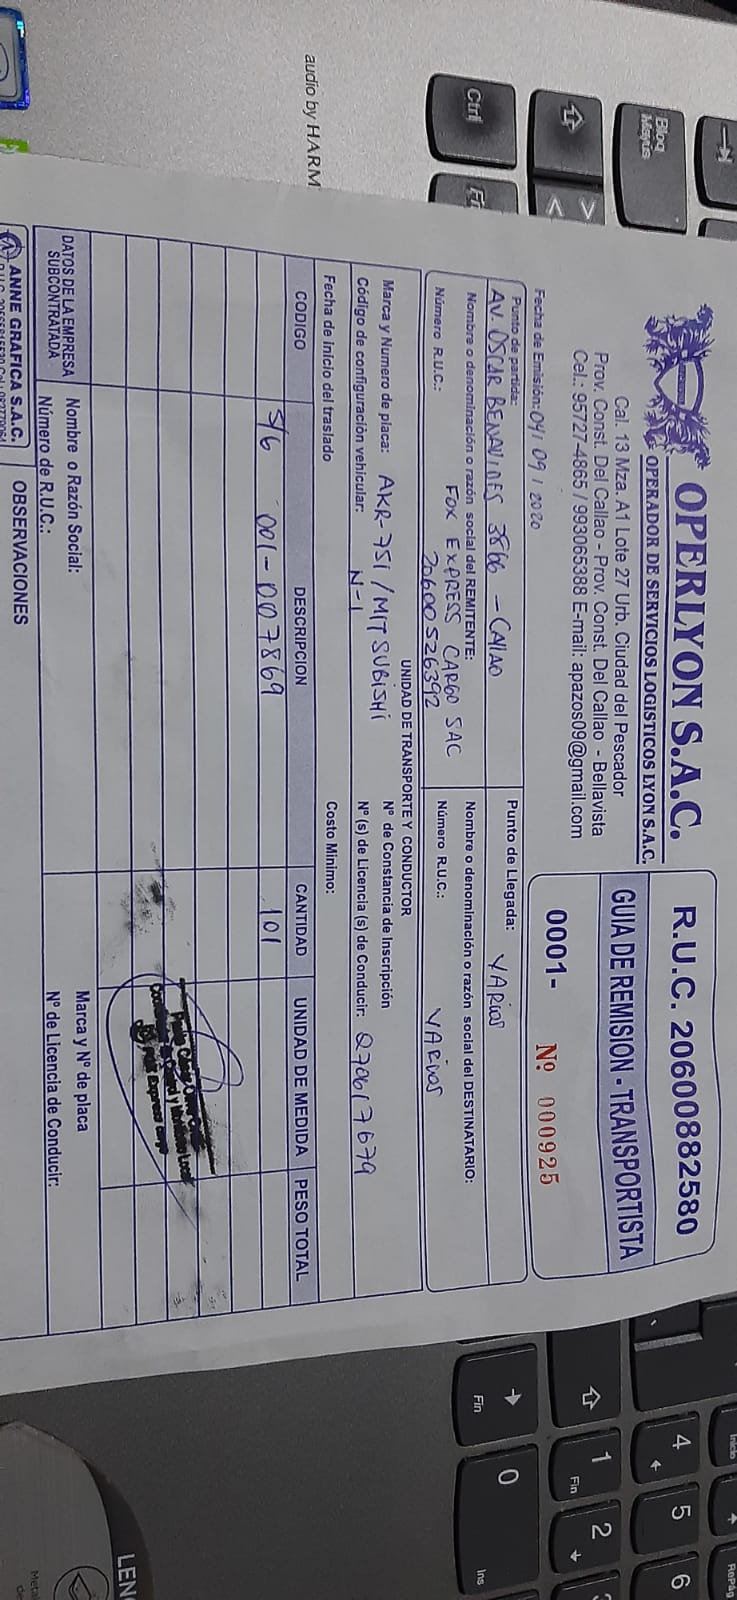 OPERLYON S.A.C.
OPERADOR DE SERVICIOS LOGISTICOS LYON S.A.C.
Cal. 13 Mza. A1 Lote 27 Urb. Ciudad del Pescador
Prov. Const. Del Callao - Prov. Const. Del Callao - Bellavista
Cel.: 95727-4865 / 993065388 E-mail: apazos09@gmail.com
R.U.C. 20600882580
GUIA DE REMISION - TRANSPORTISTA
0001- Nº 000925
Fecha de Emisión: 04 / 09 / 2020
Punto de partida:
AV. OSCAR BENAVIDES 3866 - CALLAO
Punto de Llegada: VARIOS
Nombre o denominación o razón social del REMITENTE:
FOX EXPRESS CARGO SAC
Número R.U.C.: 20600526392
Nombre o denominación o razón social del DESTINATARIO:
VARIOS
Número R.U.C.:
UNIDAD DE TRANSPORTE Y CONDUCTOR
Marca y Numero de placa: AKR-751 / MITSUBISHI
Nº de Constancia de Inscripción
Código de configuración vehicular: N-1
Nº (s) de Licencia (s) de Conducir: Q70617679
Fecha de inicio del traslado
Costo Minimo:
CODIGO DESCRIPCION CANTIDAD UNIDAD DE MEDIDA PESO TOTAL
S/G 001-007869 101
DATOS DE LA EMPRESA SUBCONTRATADA
Nombre o Razón Social:
Marca y Nº de placa
Número de R.U.C.:
Nº de Licencia de Conducir:
ANNE GRAFICA S.A.C.
OBSERVACIONES
audio by HARM
Ctrl
Bloq
Mayús
Fin
0
Ins
1
Fin
2
3
4
5
6
Inicio
RePág
LEN